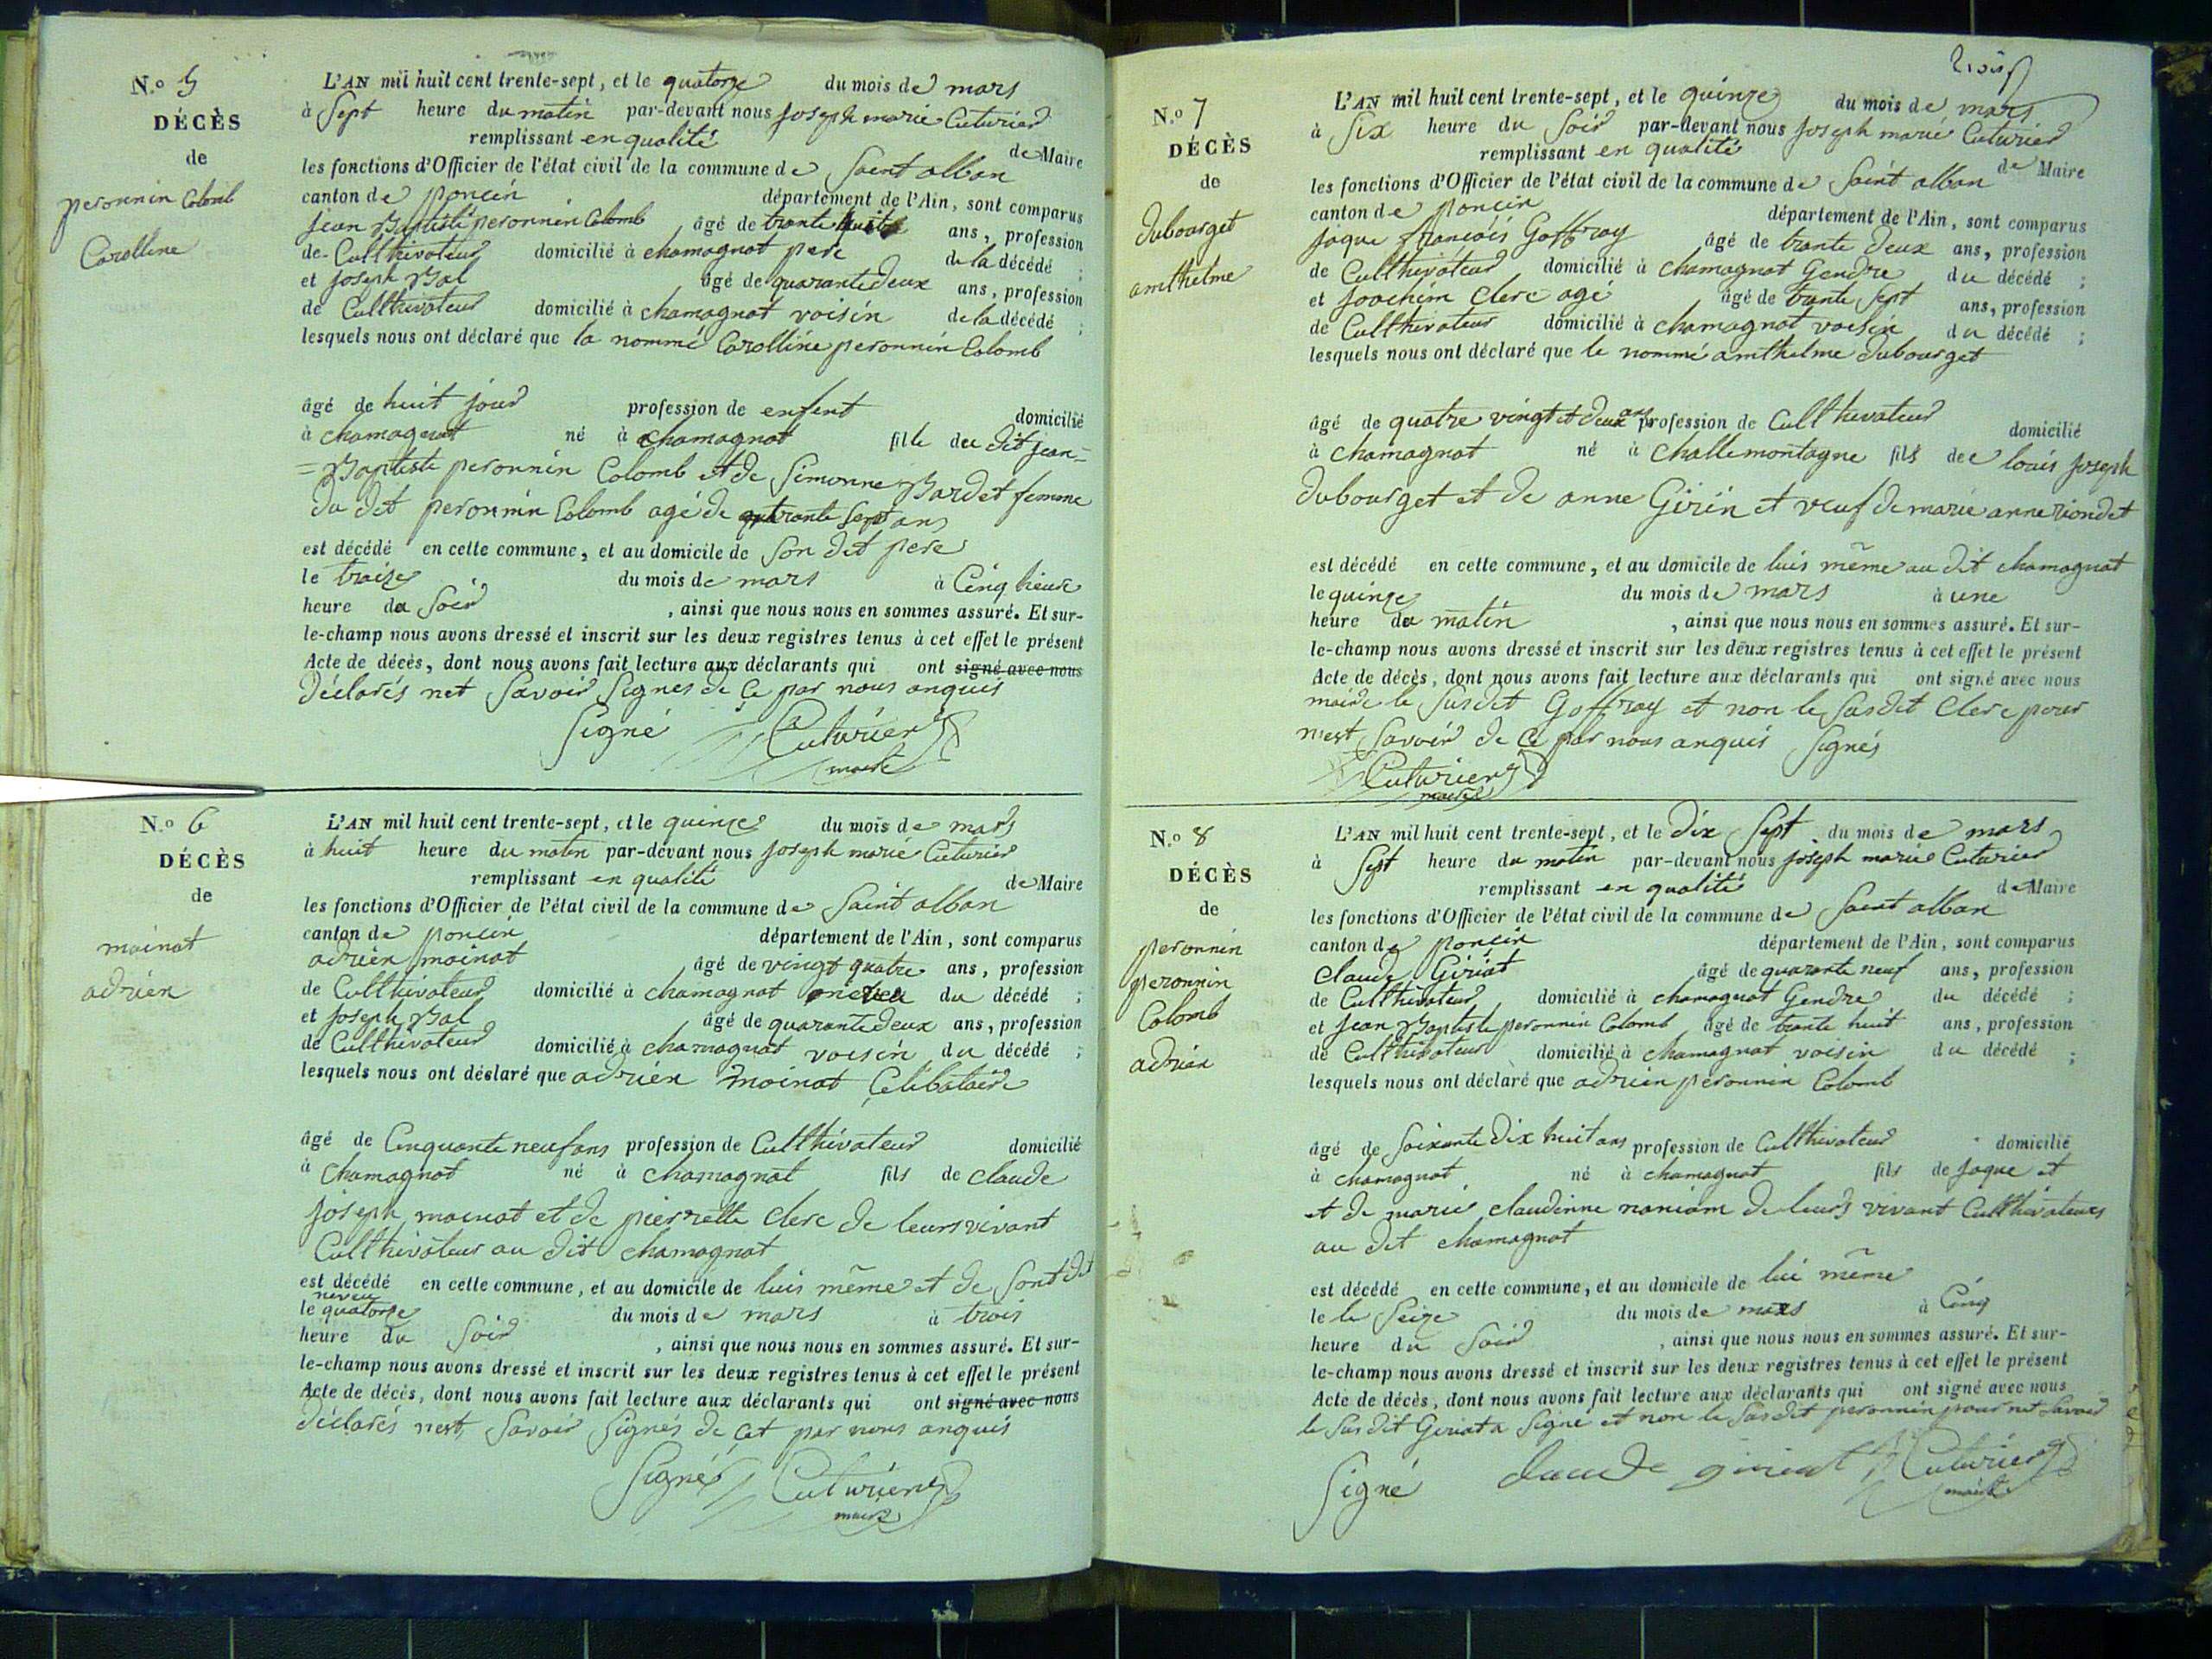 N.o 5
DÉCÈS
de
peronnin Colomb
Carolline
L'AN mil huit cent trente-sept, et le quatorze du mois de mars
à Sept heure du matin par-devant nous joseph marie Cuturier
remplissant en qualité de Maire
les fonctions d'Officier de l'état civil de la commune de Saint alban
canton de poncin département de l'Ain, sont comparus
jean Baptiste peronnin Colomb âgé de trante huit ans, profession
de Cullthivateur domicilié à chamagnat pere de la décédé ;
et joseph Bal âgé de quarante deux ans, profession
de Cullthivateur domicilié à chamagnat voisin de la décédé ;
lesquels nous ont déclaré que la nommé Carolline peronnin Colomb
âgé de huit jour profession de enfent domicilié
à chamagnat né à chamagnat fille du dit jean=
=Baptiste peronnin Colomb et de Simonne Bardet femme
du dit peronnin Colomb agé de trante Sept ans
est décédé en cette commune, et au domicile de Son dit pere
le traize du mois de mars à Cinq heure
heure du Soir , ainsi que nous nous en sommes assuré. Et sur-
le-champ nous avons dressé et inscrit sur les deux registres tenus à cet effet le présent
Acte de décès, dont nous avons fait lecture aux déclarants qui ont signé avec nous
déclarés net Savoir Signes de Ce par nous anquis
Signé Cuturier
maire
N.o 6
DÉCÈS
de
moinat
adrien
L'AN mil huit cent trente-sept, et le quinze du mois de mars
à huit heure du matin par-devant nous joseph marie Cuturier
remplissant en qualité de Maire
les fonctions d'Officier de l'état civil de la commune de Saint alban
canton de poncin département de l'Ain, sont comparus
adrien moinat âgé de vingt quatre ans, profession
de Cullthivateur domicilié à chamagnat neveu du décédé ;
et joseph Bal âgé de quarante deux ans, profession
de Cullthivateur domicilié à chamagnat voisin du décédé ;
lesquels nous ont déclaré que adrien moinat Célibataire
âgé de Cinquante neuf ans profession de Cullthivateur domicilié
à chamagnat né à chamagnat fils de claude
joseph moinat et de pierrette clerc de leurs vivant
Cullthivateur au dit chamagnat
est décédé en cette commune, et au domicile de luis même et de Sont dit
neveu
le quatorze du mois de mars à trois
heure du Soir , ainsi que nous nous en sommes assuré. Et sur-
le-champ nous avons dressé et inscrit sur les deux registres tenus à cet effet le présent
Acte de décès, dont nous avons fait lecture aux déclarants qui ont signé avec nous
déclarés nest Savoir Signés de Cet par nous anquis
Signés Cuturier
maire
trois
N.o 7
DÉCÈS
de
dubourget
amthelme
L'AN mil huit cent trente-sept, et le quinze du mois de mars
à Six heure du Soir par-devant nous joseph marie Cuturier
remplissant en qualité de Maire
les fonctions d'Officier de l'état civil de la commune de Saint alban
canton de poncin département de l'Ain, sont comparus
jaque françois Goffray âgé de trante deux ans, profession
de Cullthivateur domicilié à chamagnat Gendre du décédé ;
et joachim clerc agé âgé de trante Sept ans, profession
de Cullthivateur domicilié à chamagnat voisin du décédé ;
lesquels nous ont déclaré que le nommé amthelme dubourget
âgé de quatre vingt et deux ans profession de Cullthivateur domicilié
à chamagnat né à challemontagne fils de louis joseph
dubourget et de anne Girin et veuf de marie anne riondet
est décédé en cette commune, et au domicile de luis même au dit chamagnat
le quinze du mois de mars à une
heure du matin , ainsi que nous nous en sommes assuré. Et sur-
le-champ nous avons dressé et inscrit sur les deux registres tenus à cet effet le présent
Acte de décès, dont nous avons fait lecture aux déclarants qui ont signé avec nous
maire le Susdit Goffray et non le Susdit Clerc pour
nest Savoir de Ce par nous anquis Signés
Cuturier
maire
N.o 8
DÉCÈS
de
peronnin
peronnin
Colomb
adrien
L'AN mil huit cent trente-sept, et le dix Sept du mois de mars
à Sept heure du matin par-devant nous joseph marie Cuturier
remplissant en qualité de Maire
les fonctions d'Officier de l'état civil de la commune de Saint alban
canton de poncin département de l'Ain, sont comparus
claude Giriat âgé de quarante neuf ans, profession
de Cullthivateur domicilié à chamagnat Gendre du décédé ;
et jean Baptiste peronnin Colomb âgé de trante huit ans, profession
de Cullthivateur domicilié à chamagnat voisin du décédé ;
lesquels nous ont déclaré que adrien peronnin Colomb
âgé de Soixante dix huit ans profession de Cullthivateur domicilié
à chamagnat né à chamagnat fils de jaque et
et de marie claudinne naniom de leurs vivant Cullthivateurs
au dit chamagnat
est décédé en cette commune, et au domicile de lui même
le le Seize du mois de mars à Cinq
heure du Soir , ainsi que nous nous en sommes assuré. Et sur-
le-champ nous avons dressé et inscrit sur les deux registres tenus à cet effet le présent
Acte de décès, dont nous avons fait lecture aux déclarants qui ont signé avec nous
le Sus dit Giriat a Signe et non le Sus dit peronnin pour net Savoir
Signé claude giriat Cuturier
maire